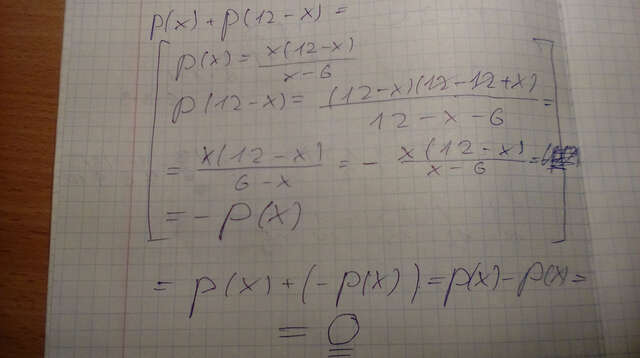 p(x) + p(12-x) =
p(x) = x(12-x)/x-6
p(12-x) = (12-x)(12-12+x)/12-x-6 =
= x(12-x)/6-x = - x(12-x)/x-6 =
= -p(x)
= p(x) + (-p(x)) = p(x) - p(x) =
= 0